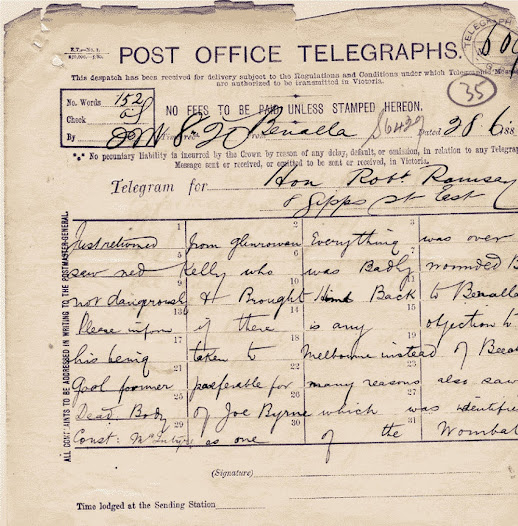 E.T.—No. 1.
POST OFFICE TELEGRAPHS.
TELEGRAPH
This despatch has been received for delivery subject to the Regulations and Conditions under which Telegrams
are authorized to be transmitted in Victoria.
35
No. Words 152
Check
By
NO FEES TO BE PAID UNLESS STAMPED HEREON.
8 20 Benalla Dated 28/6/188
No pecuniary liability is incurred by the Crown by reason of any delay, default, or omission, in relation to any Telegra
Message sent or received, or omitted to be sent or received, in Victoria.
Telegram for Hon Robt Ramsay
8 Gipps St East
ALL COMPLAINTS TO BE ADDRESSED IN WRITING TO THE POSTMASTER-GENERAL.
1 2 3
Just returned from Glenrowan Everything was over
5 6 7
saw ned Kelly who was Badly wounded B
9 10 11
not dangerously & Brought Him Back to Benalla
13 14 15
Please inform if there is any objection to
17 18 19
his being taken to Melbourne instead of Beech
21 22 23
Gaol former preferable for many reasons also saw
25 26 27
Dead Body of Joe Byrne which was identifie
29 30 31
Const: McIntyre as one of the Wombat
(Signature)
Time lodged at the Sending Station